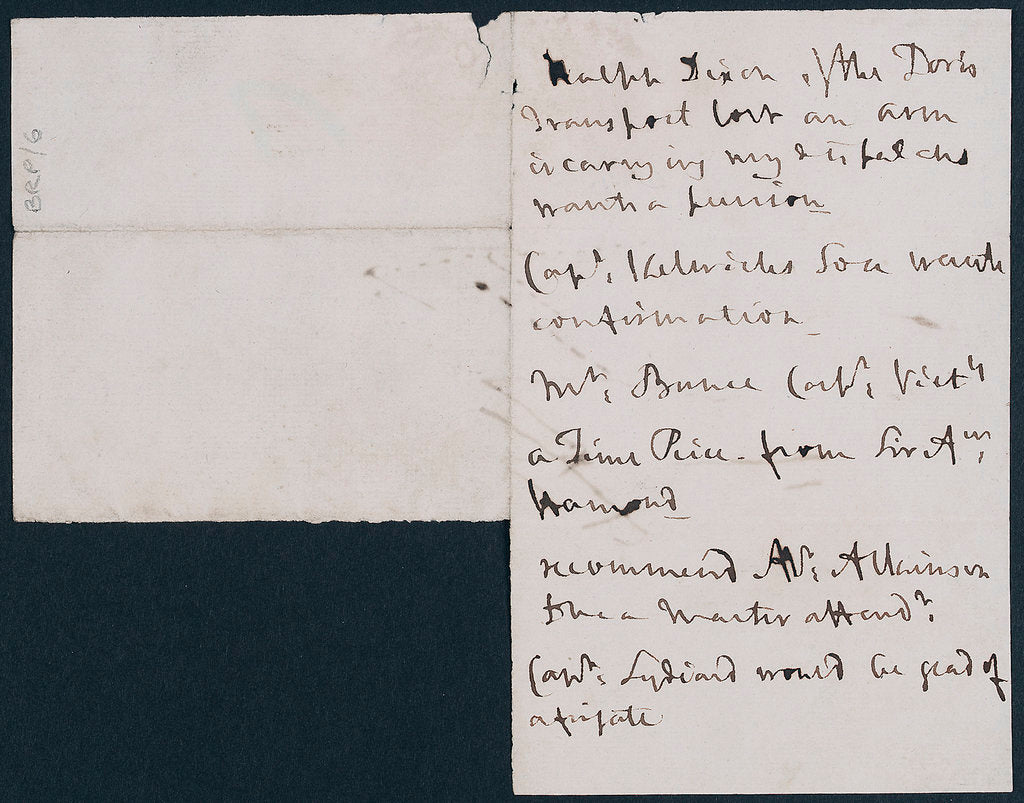 BRP/6
Ralph Dixon of the Doris
Transport lost an arm
in carrying my dispatches
wants a pension
Capt. Kelwicks Son wants
confirmation
Mr. Bunce Capt. Vict.y
a Time Peice - from Sir A.w.
Hamond
recommend Mr. Atkinson
to be a Master attend.t
Capt. Lydiard would be glad of
a frigate